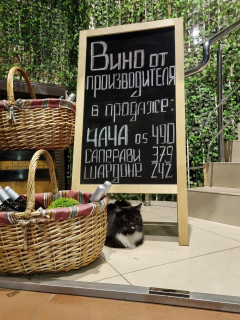 Вино от
производителя
в продаже:
чача 0,5 490
саперави 379
шардоне 242